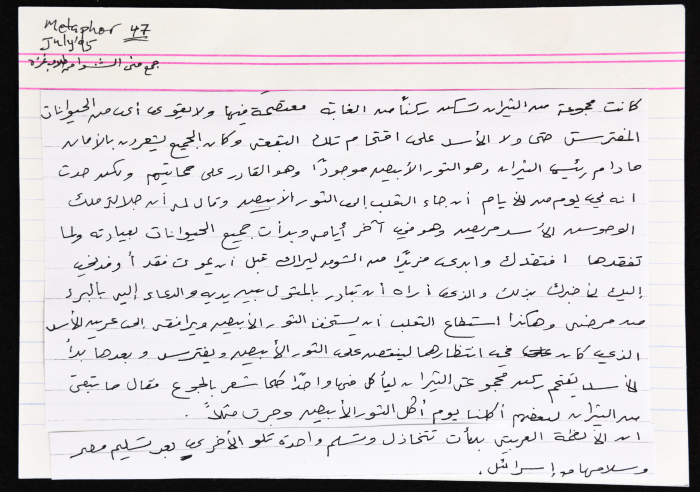 Metaphor 47
July'95
جمع منى الشوا من طلاب غزة
كانت مجموعة من الثيران تسكن ركناً من الغابة معتصمة فيها ولا يقوى أي من الحيوانات
المفترسة حتى ولا الأسد على اقتحام تلك البقعة وكان الجميع يشعرون بالأمان
مادام رئيس الثيران وهو الثور الأبيض موجوداً وهو القادر على حمايتهم ولكن حدث
انه في يوم من الأيام أن جاء الثعلب إلى الثور الأبيض وقال له أن جلالة ملك
الوحوش الأسد مريض وهو في آخر أيامه وبدأت جميع الحيوانات بعيادته ولما
تفقدها افتقدك وابدى مزيداً من الشوق ليراك قبل أن يموت فقد أوفدني
إليك لأخبرك بذلك والذي أراه أن تبادر بالمثول بين يديه والدعاء إليه بالبرء
من مرضه وهكذا استطاع الثعلب أن يستخف الثور الأبيض ويرافقه إلى عرين الأسد
الذي كان في انتظارهما لينقض على الثور الأبيض ويفترسه وبعدها بدأ
الأسد يقتحم ركن مجموعة الثيران ليأكل فيها واحداً كلما شعر بالجوع فقال ما تبقى
من الثيران لبعضهم أكلنا يوم أكل الثور الأبيض وجرت مثلاً .
ان الأنظمة العربية بدأت تتخاذل وتسلم واحدة تلو الأخرى بعد تسليم مصر
وسلامها مع إسرائيل .